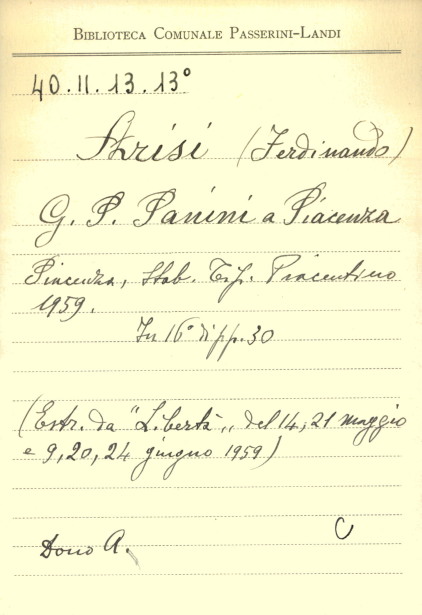 BIBLIOTECA COMUNALE PASSERINI-LANDI
40.II.13.13°
Arisi (Ferdinando)
G. P. Panini a Piacenza
Piacenza, Stab. Tip. Piacentino
1959.
In 16° di pp. 30
(Estr. da "Libertà„ del 14, 21 maggio
e 9, 20, 24 giugno 1959)
C
Dono A.